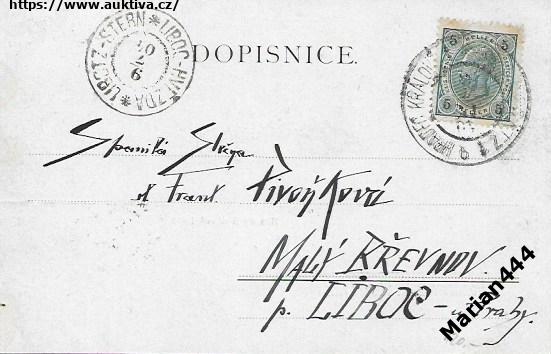 https://www.auktiva.cz/
LIBOTZ-STERN * LIBOC-HVĚZDA *
20
2
6
DOPISNICE.
5 5
5 5
HRADEC KRÁLOVÉ
Frant. Pivoňková
MALÝ BŘEVNOV.
p. LIBOC - u Prahy
Marian444